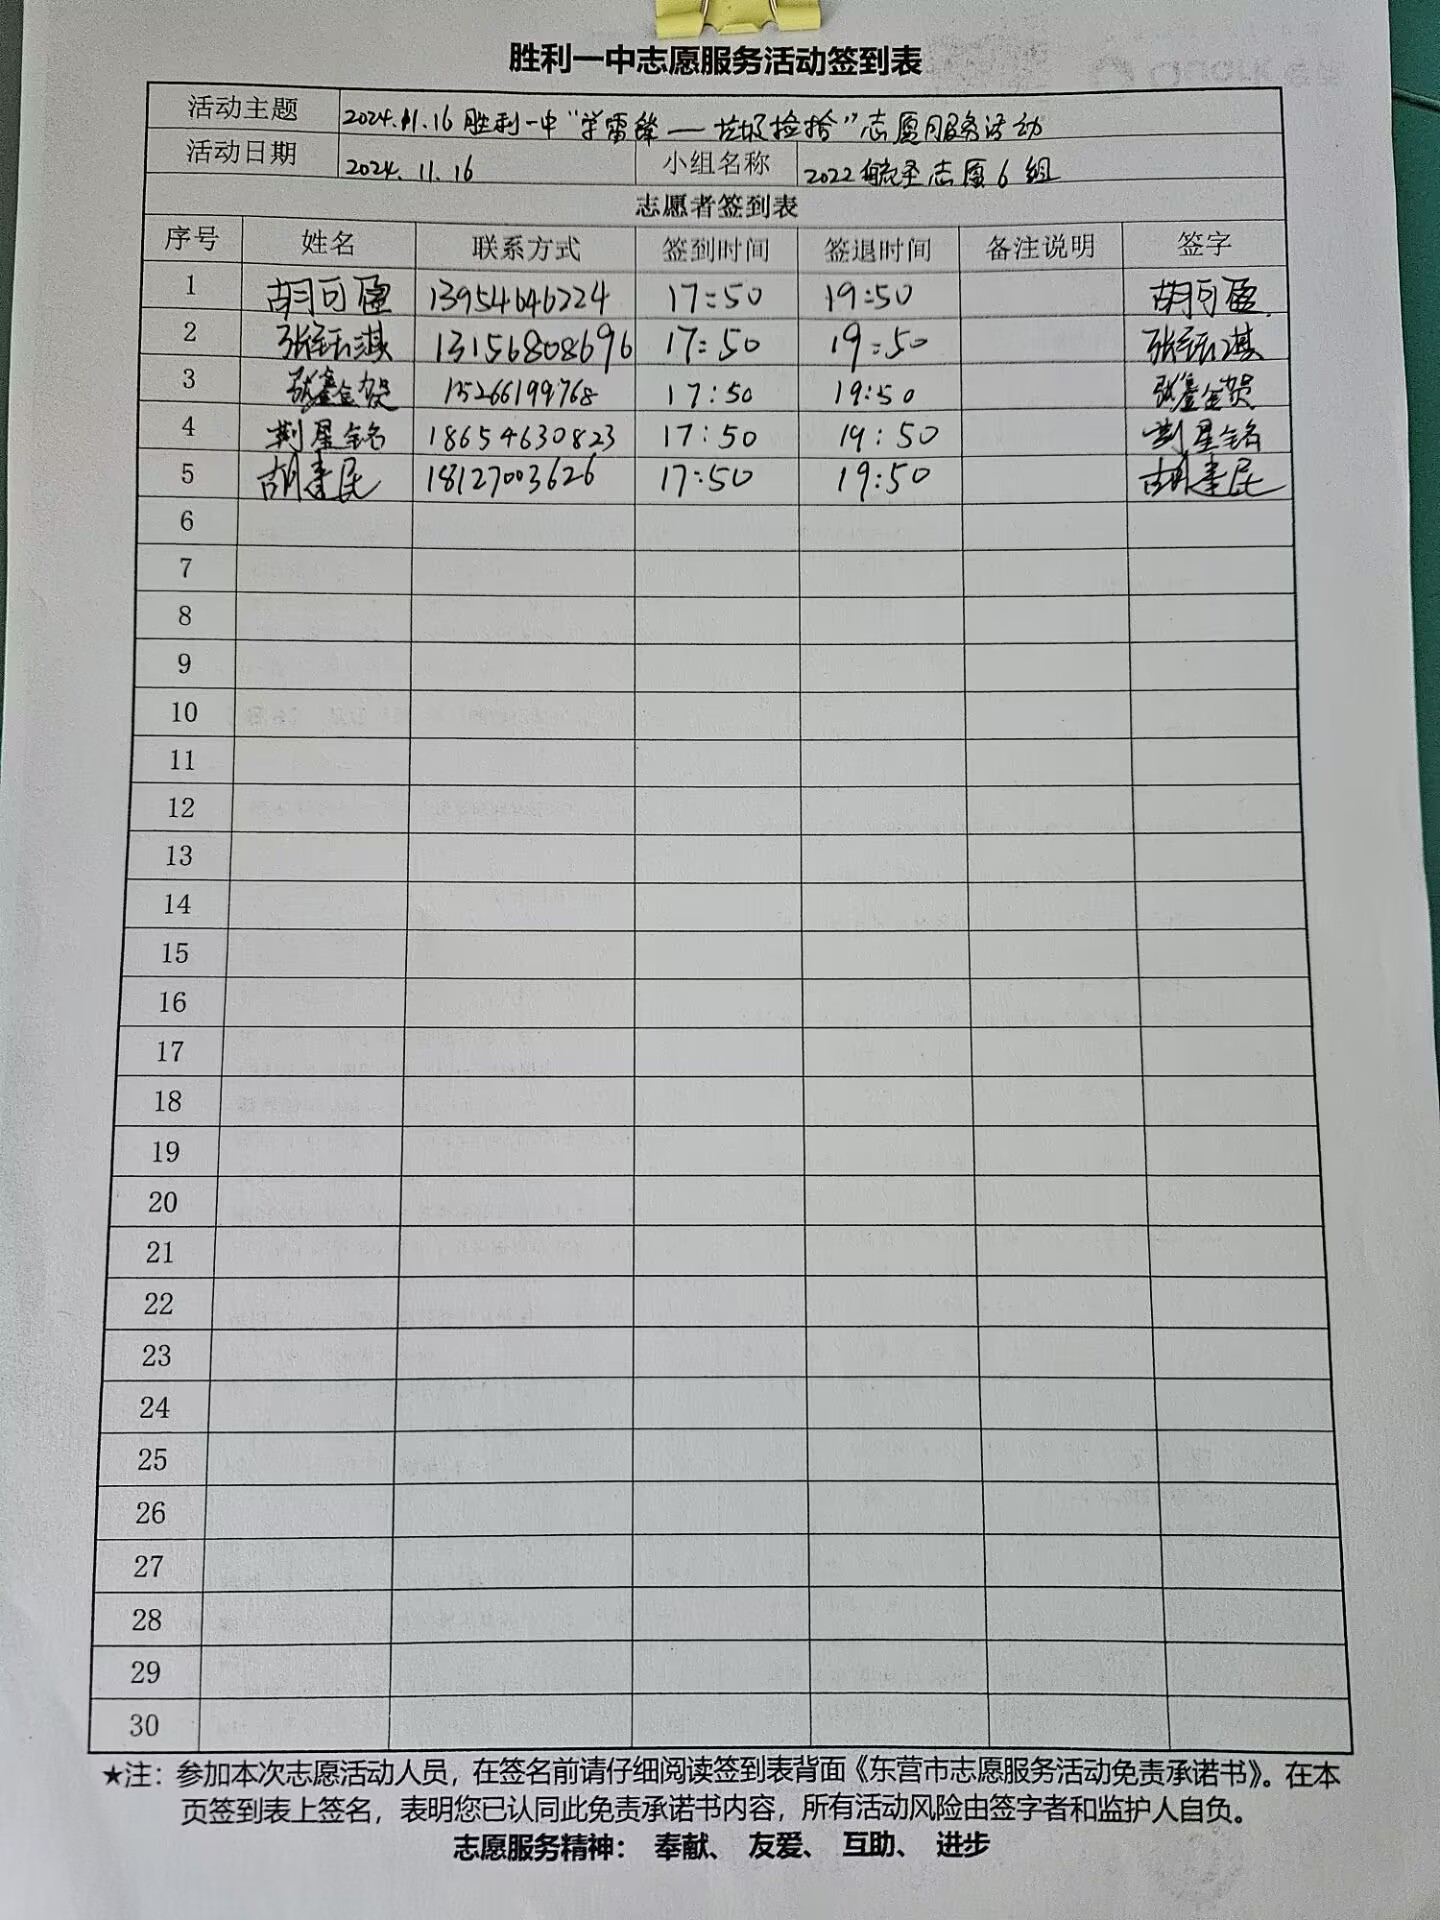 胜利一中志愿服务活动签到表
活动主题 2024.11.16 胜利一中“学雷锋—垃圾捡拾”志愿服务活动
活动日期 2024.11.16 小组名称 2022 志愿6组
志愿者签到表
序号 姓名 联系方式 签到时间 签退时间 备注说明 签字
1 胡可盈 13954646224 17:50 19:50 胡可盈
2 张钰淇 13156808696 17:50 19:50 张钰淇
3 张鑫贺 15266199768 17:50 19:50 张鑫贺
4 荆星铭 18654630823 17:50 19:50 荆星铭
5 胡建民 18127003626 17:50 19:50 胡建民
6
7
8
9
10
11
12
13
14
15
16
17
18
19
20
21
22
23
24
25
26
27
28
29
30
★注：参加本次志愿活动人员，在签名前请仔细阅读签到表背面《东营市志愿服务活动免责承诺书》。在本
页签到表上签名，表明您已认同此免责承诺书内容，所有活动风险由签字者和监护人自负。
志愿服务精神： 奉献、 友爱、 互助、 进步